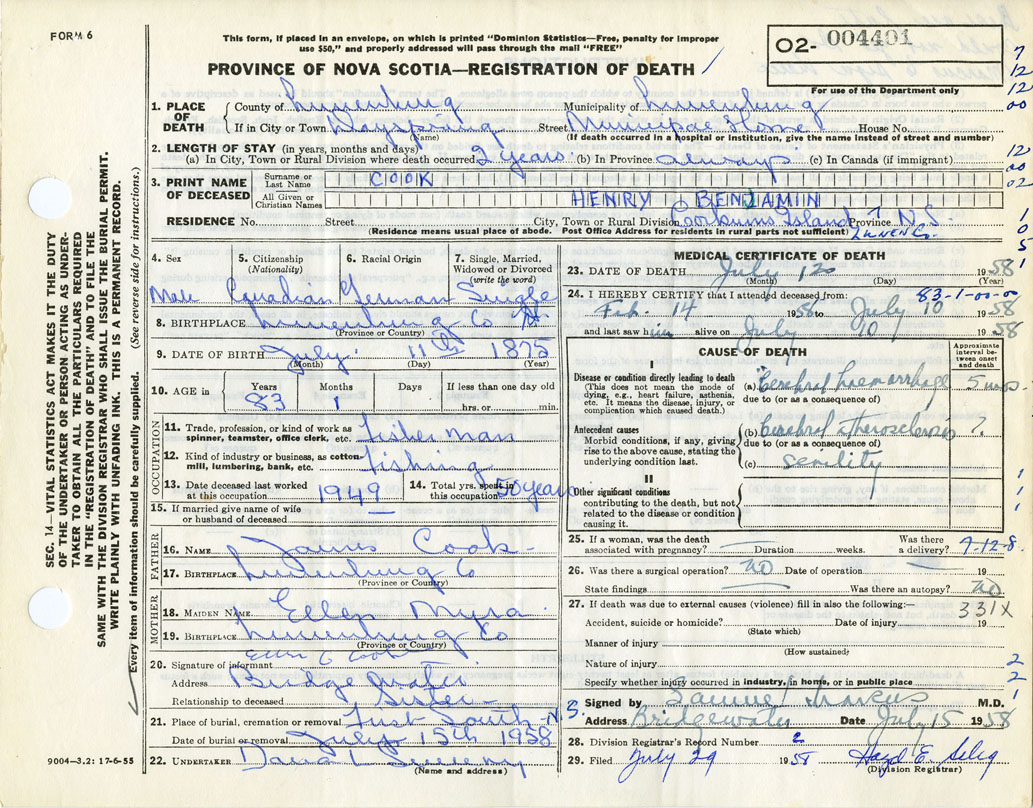 FORM 6
This form, if placed in an envelope, on which is printed "Dominion Statistics—Free, penalty for improper
use $50," and properly addressed will pass through the mail "FREE"
O2- 004401
PROVINCE OF NOVA SCOTIA—REGISTRATION OF DEATH
For use of the Department only
1. PLACE OF DEATH County of Lunenburg Municipality of Lunenburg
If in City or Town Dayspring Street Municipal Home House No.
(Name) (If death occurred in a hospital or institution, give the name instead of street and number)
2. LENGTH OF STAY (in years, months and days)
(a) In City, Town or Rural Division where death occurred 2 years (b) In Province always (c) In Canada (if immigrant)
3. PRINT NAME OF DECEASED
Surname or Last Name COOK
All Given or Christian Names HENRY BENJAMIN
RESIDENCE No. Street City, Town or Rural Division Island Province N.S.
(Residence means usual place of abode. Post Office Address for residents in rural parts not sufficient) LUNEN Co.
4. Sex Male
5. Citizenship (Nationality) Canadian
6. Racial Origin German
7. Single, Married, Widowed or Divorced (write the word) Single
8. BIRTHPLACE Lunenburg Co
(Province or Country)
9. DATE OF BIRTH July 11th 1875
(Month) (Day) (Year)
10. AGE in Years 83 Months 1 Days If less than one day old hrs. or min.
OCCUPATION
11. Trade, profession, or kind of work as spinner, teamster, office clerk, etc. Fisherman
12. Kind of industry or business, as cotton-mill, lumbering, bank, etc. Fishing
13. Date deceased last worked at this occupation 1949
14. Total yrs. spent in this occupation 50 years
15. If married give name of wife or husband of deceased
FATHER
16. NAME James Cook
17. BIRTHPLACE Lunenburg Co
(Province or Country)
MOTHER
18. MAIDEN NAME Ellen Myra
19. BIRTHPLACE Lunenburg Co
(Province or Country)
20. Signature of informant Cook
Address Bridgewater
Relationship to deceased Sister
21. Place of burial, cremation or removal First South N.S.
Date of burial or removal July 15th 1958
22. UNDERTAKER David Sweeny
(Name and address)
MEDICAL CERTIFICATE OF DEATH
23. DATE OF DEATH July 12 1958
(Month) (Day) (Year)
24. I HEREBY CERTIFY that I attended deceased from: 83-1-00-00
Feb. 14 1958 to July 10 1958
and last saw him alive on July 10 1958
CAUSE OF DEATH
Approximate interval between onset and death
I
Disease or condition directly leading to death
(This does not mean the mode of dying, e.g., heart failure, asthenia, etc. It means the disease, injury, or complication which caused death.)
(a) Cerebral haemorrhage 5 mos.
due to (or as a consequence of)
Antecedent causes
Morbid conditions, if any, giving rise to the above cause, stating the underlying condition last.
(b) Cerebral atherosclerosis ?
due to (or as a consequence of)
(c) senility
II
Other significant conditions
contributing to the death, but not related to the disease or condition causing it.
25. If a woman, was the death associated with pregnancy? Duration weeks. Was there a delivery? 9-12-8.
26. Was there a surgical operation? NO Date of operation 19
State findings Was there an autopsy? NO
27. If death was due to external causes (violence) fill in also the following:— 331X
Accident, suicide or homicide? Date of injury 19
(State which)
Manner of injury
(How sustained)
Nature of injury
Specify whether injury occurred in industry, in home, or in public place
Signed by Samuel Marcus M.D.
Address Bridgewater Date July 15 1958
28. Division Registrar's Record Number 2
29. Filed July 29 1958 Hazel E.
(Division Registrar)
SEC. 14—VITAL STATISTICS ACT MAKES IT THE DUTY
OF THE UNDERTAKER OR PERSON ACTING AS UNDER-
TAKER TO OBTAIN ALL THE PARTICULARS REQUIRED
IN THE "REGISTRATION OF DEATH" AND TO FILE THE
SAME WITH THE DIVISION REGISTRAR WHO SHALL ISSUE THE BURIAL PERMIT.
WRITE PLAINLY WITH UNFADING INK. THIS IS A PERMANENT RECORD.
Every item of information should be carefully supplied. (See reverse side for instructions.)
9004—3.2: 17-6-55
7
12
12
00
12
00
02
1
0
5
1
1
1
1
2
2